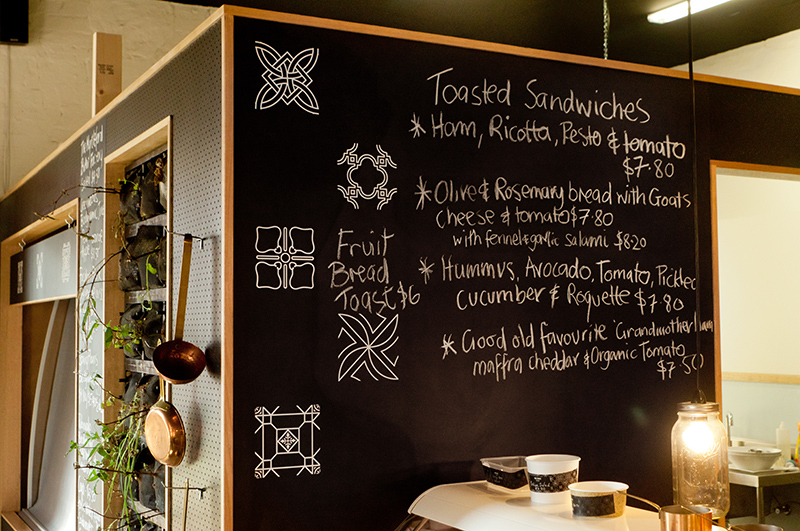 Toasted Sandwiches
* Ham, Ricotta, Pesto & tomato
$7.80
* Olive & Rosemary bread with Goats
cheese & tomato $7.80
with fennel & garlic salami $8.20
* Hummus, Avocado, Tomato, Pickled
cucumber & Roquette $7.80
* Good old favourite 'Grandmother' ham
maffra cheddar & Organic Tomato
$7.50
Fruit
Bread
Toast $6